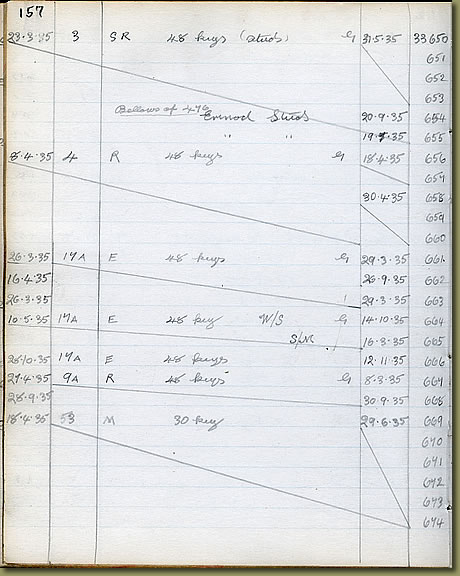 157
23.3.35 3 SR 48 keys (studs) G 31.5.35 33650
651
652
653
Bellows of 4 Studs 20.9.35 654
" " 19.5.35 655
8.4.35 4 R 48 keys G 18.4.35 656
657
30.4.35 658
659
660
26.3.35 17A E 48 keys G 29.3.35 661
16.4.35 26.9.35 662
26.3.35 29.3.35 663
10.5.35 17A E 48 key W/S G 14.10.35 664
16.3.35 665
28.10.35 17A E 48 keys 12.11.35 666
27.4.35 9A R 48 keys G 8.3.35 667
28.9.35 30.9.35 668
18.4.35 53 M 30 key 29.6.35 669
670
671
672
673
674